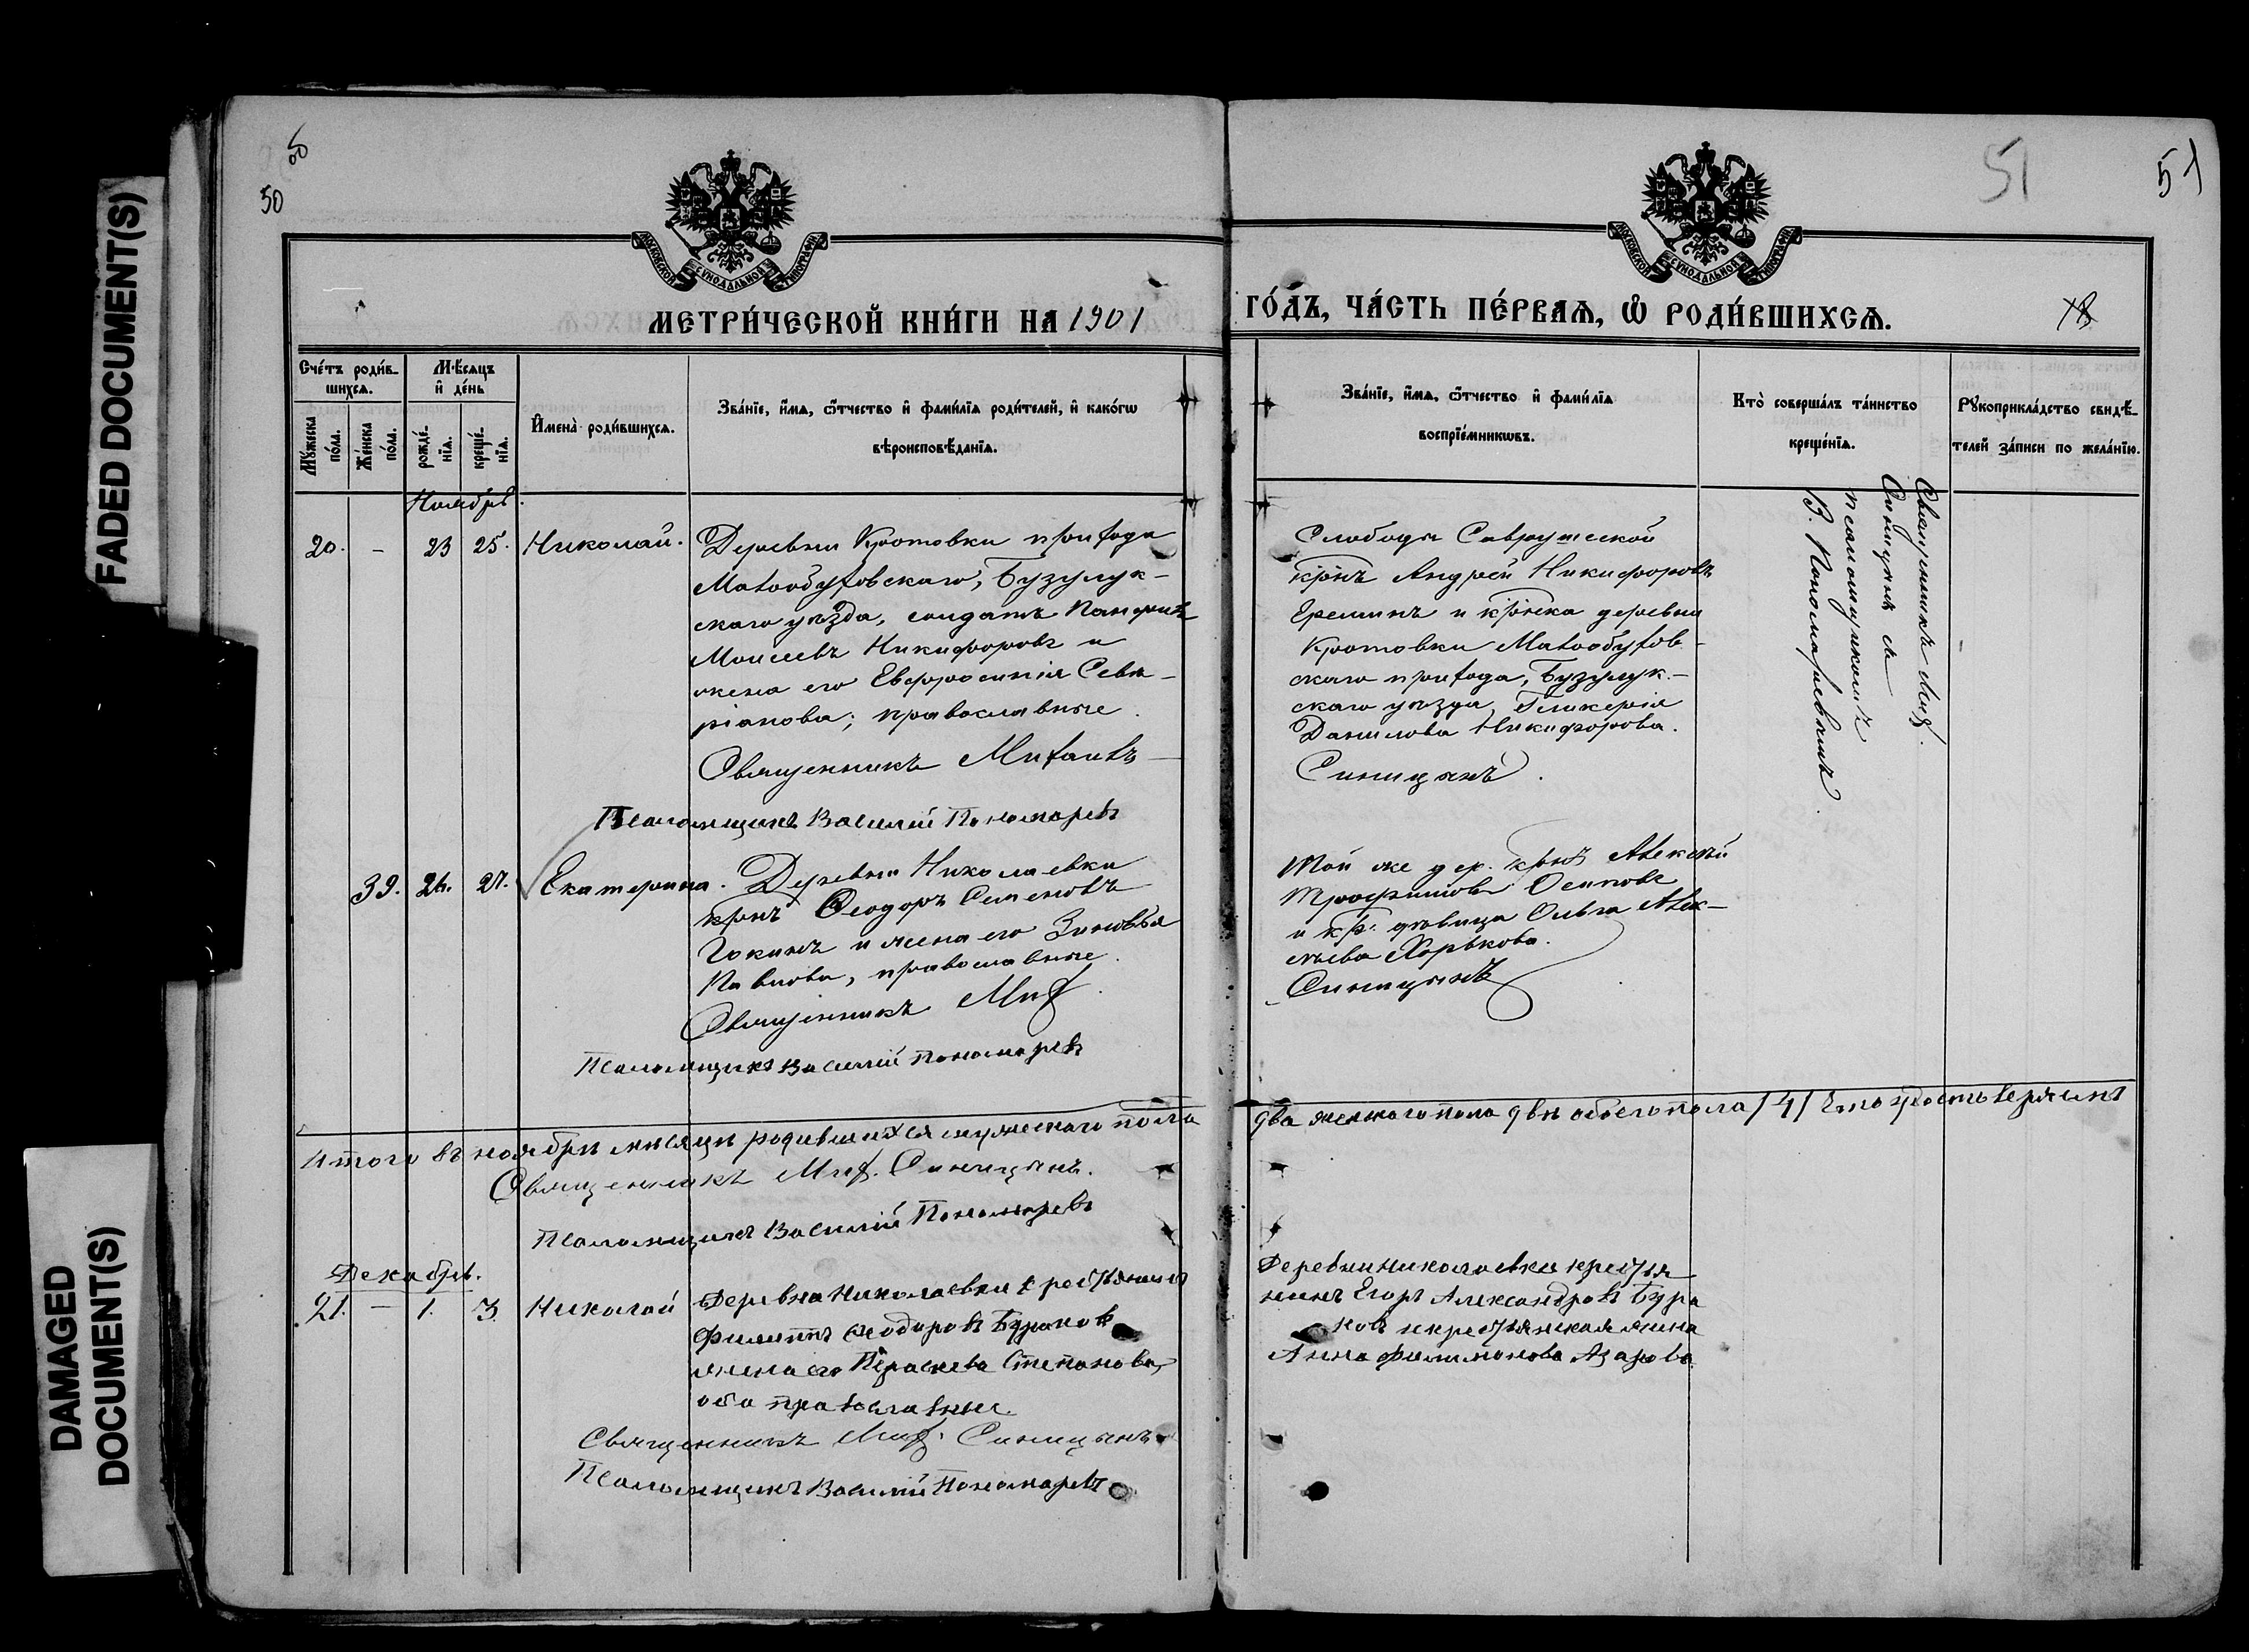 FADED DOCUMENT(S)
DAMAGED DOCUMENT(S)
50
51
51
МОСКОВСКОЙ СѴНОДАЛЬНОЙ ТИПОГРАФІИ
МОСКОВСКОЙ СѴНОДАЛЬНОЙ ТИПОГРАФІИ
МЕТРИ́ЧЕСКОЙ КНИ́ГИ НА 1901
ГО́ДЪ, ЧА́СТЬ ПЕ́РВАѦ, Ѽ РОДИ́ВШИХСѦ.
Сче́тъ роди́в-
шихсѧ.
Мꙋ́жеска по́ла.
Же́нска по́ла.
Мѣ́сѧцъ
и҆ де́нь
рожде́-
нїѧ.
креще́-
нїѧ.
И҆мена̀ роди́вшихсѧ.
Зва́нїе, и҆́мѧ, ѻ҆́тчество и҆ фами́лїѧ роди́телей, и҆ како́гѡ
вѣроисповѣ́данїѧ.
Зва́нїе, и҆́мѧ, ѻ҆́тчество и҆ фами́лїѧ
воспрїе́мникѡвъ.
Кто̀ соверша́лъ та́инство
креще́нїѧ.
Рꙋкоприкла́дство свидѣ́-
телей за́писи по жела́нїю.
Ноябрь.
20. - 23 25. Николай.
Деревни Кротовки прихода
Малобузовскаго, Бузулук-
скаго уѣзда, солдатъ
Моисеевъ Никифоровъ и
жена его Евфросинія Севе-
ріанова; православные.
Священникъ Михаилъ
Псаломщикъ Василій Пономаревъ
Слободы Саврушской
кр-нъ Андрей Никифоровъ
Ереминъ и кр-нка деревни
Кротовки
скаго прихода, Бузулук-
скаго уѣзда, Гликерія
Данилова Никифорова.
Синицынъ.
Священникъ Мих.
Синицынъ съ
псаломщикомъ
В. Пономаревымъ.
39. 24. 27. Екатерина.
Деревни Николаевки
кр-нъ Ѳеодоръ Семеновъ
и жена его Зиновья
Павлова, православные.
Священникъ Мих.
Псаломщикъ Василій Пономаревъ
Той же дер. кр-нъ Алексѣй
Трофимовъ Осиповъ
и кр. дѣвица Ольга Алек-
сѣева Хорькова.
Синицынъ
Итого въ ноябрѣ мѣсяцѣ родившихся мужескаго пола
два женскаго пола двѣ обоего пола /4/ Что удостовѣряемъ
Священникъ Мих. Синицынъ.
Псаломщикъ Василій Пономаревъ
Декабрь.
21. - 1. 3 Николай
Деревни Николаевки крестьянинъ
Филиппъ Ѳеодоровъ Бураковъ
жена его Параскева Степанова,
оба православные.
Священникъ Мих. Синицынъ
Псаломщикъ Василій Пономаревъ
Деревни Николаевки крестья
нинъ Егоръ Александровъ Бура
ковъ и крестьянская жена
Анна Филимонова Азарова.